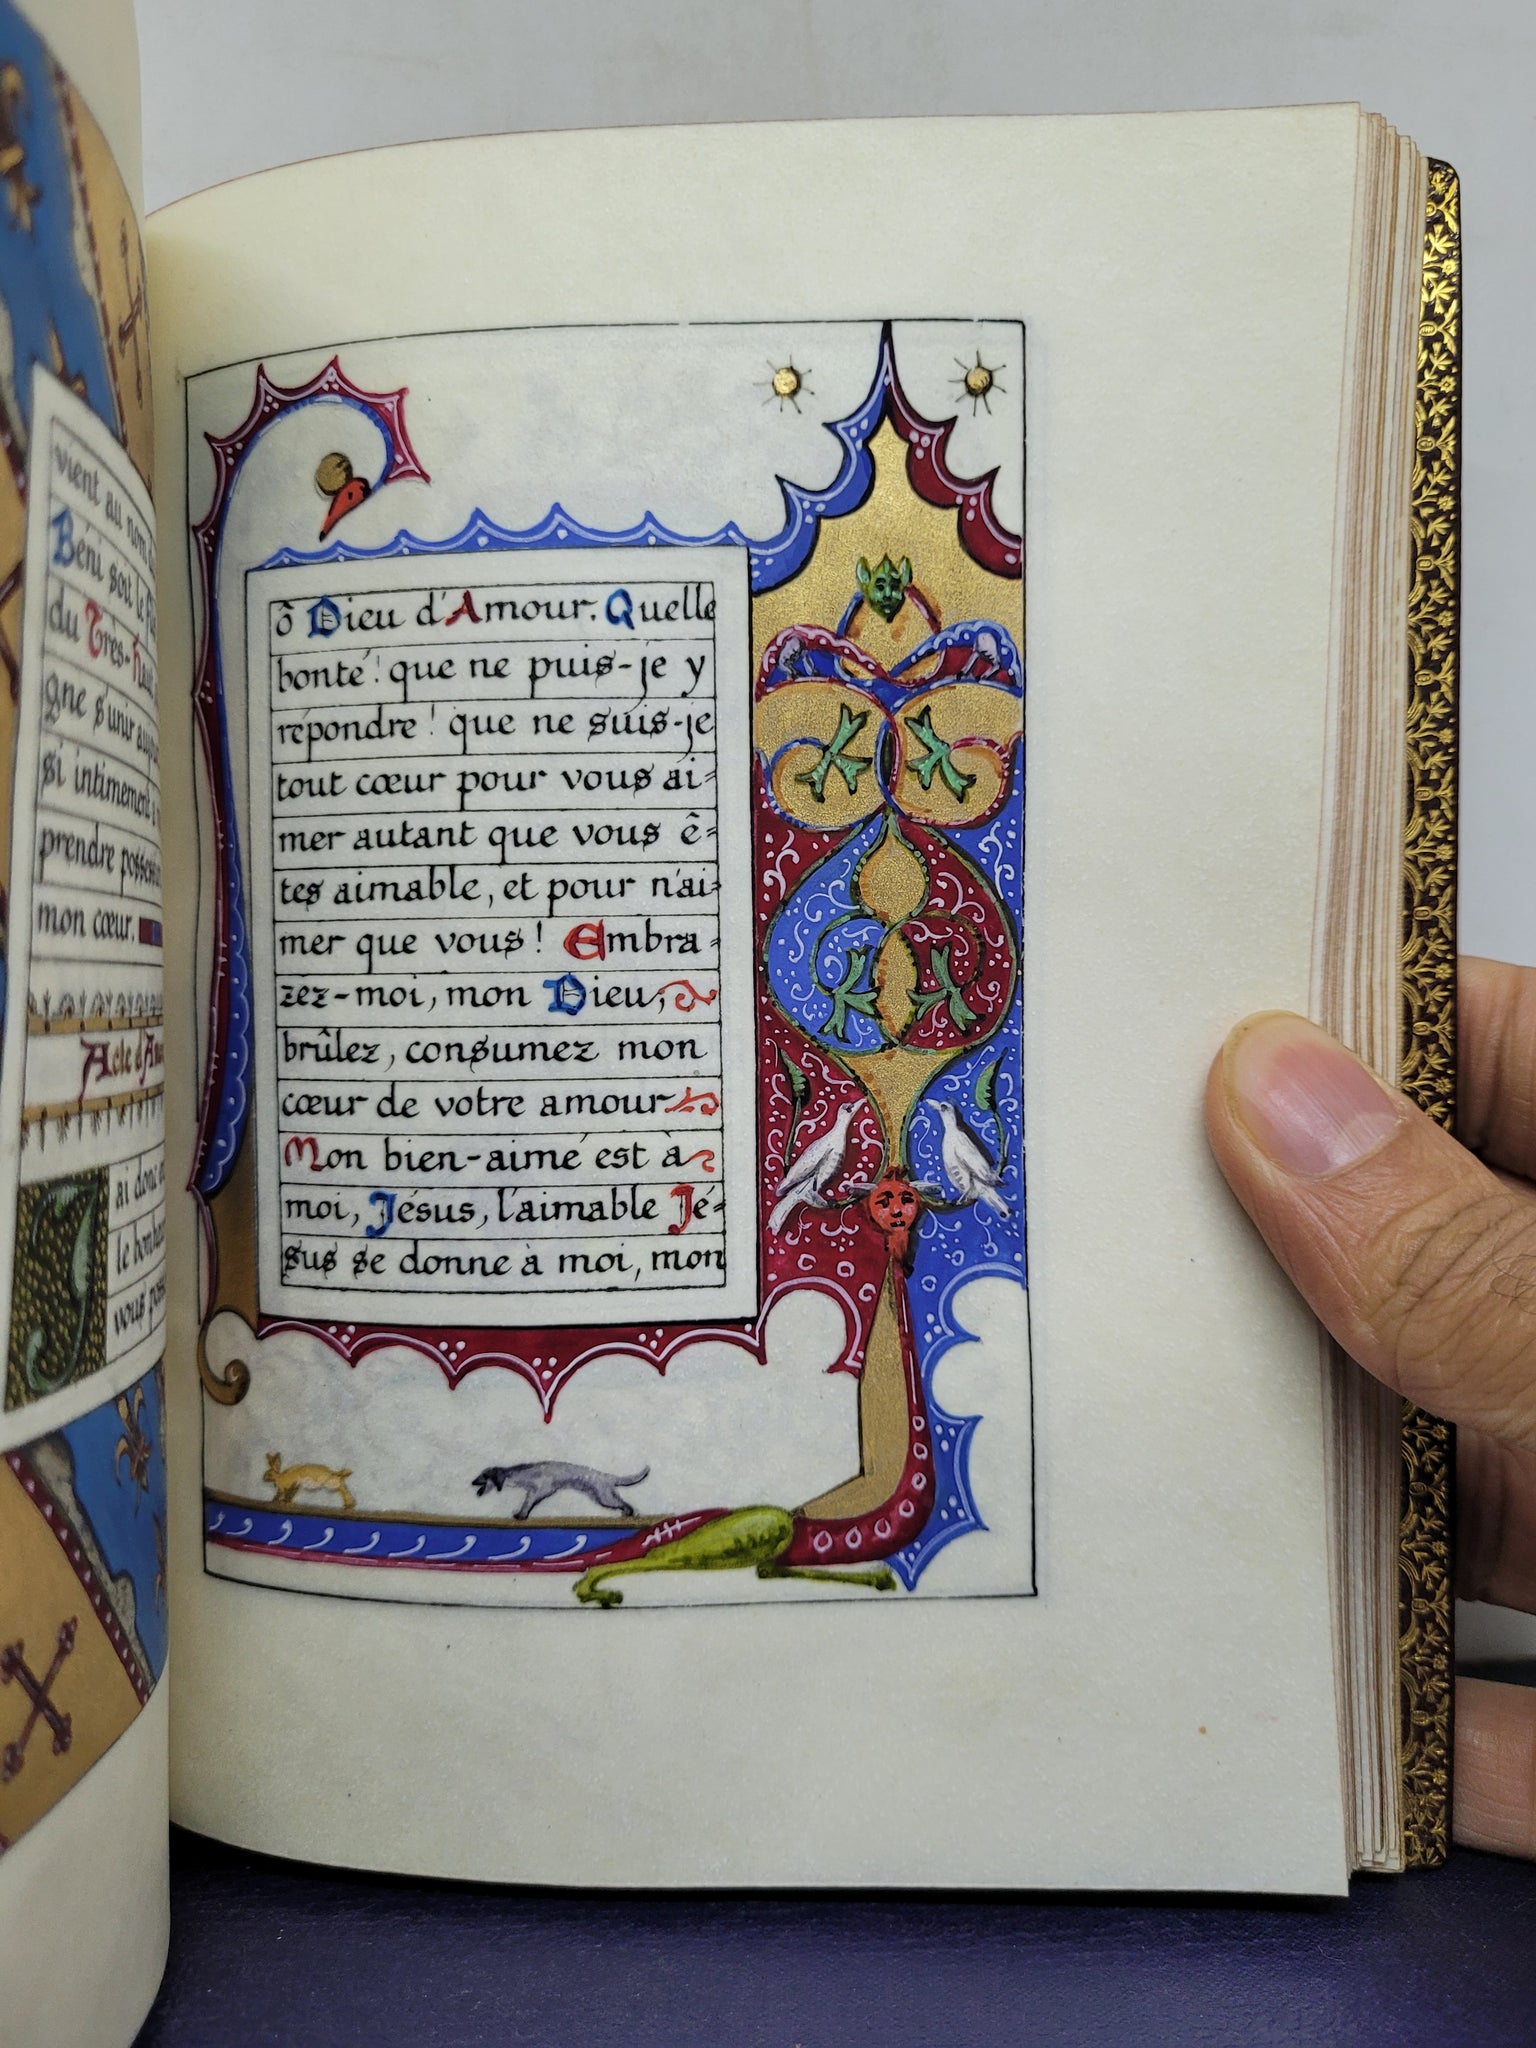 vient au nom du
Béni soit le
du Très-haut
gne s'unir
si intimement
prendre
mon cœur.
Acte
ai donc
le
vous
ô Dieu d'Amour. Quelle
bonté! que ne puis-je y
répondre! que ne suis-je
tout cœur pour vous ai-
mer autant que vous ê-
tes aimable, et pour n'ai-
mer que vous! Embra-
zez-moi, mon Dieu,
brûlez, consumez mon
cœur de votre amour
Mon bien-aimé est à
moi, Jésus, l'aimable Jé-
sus se donne à moi, mon